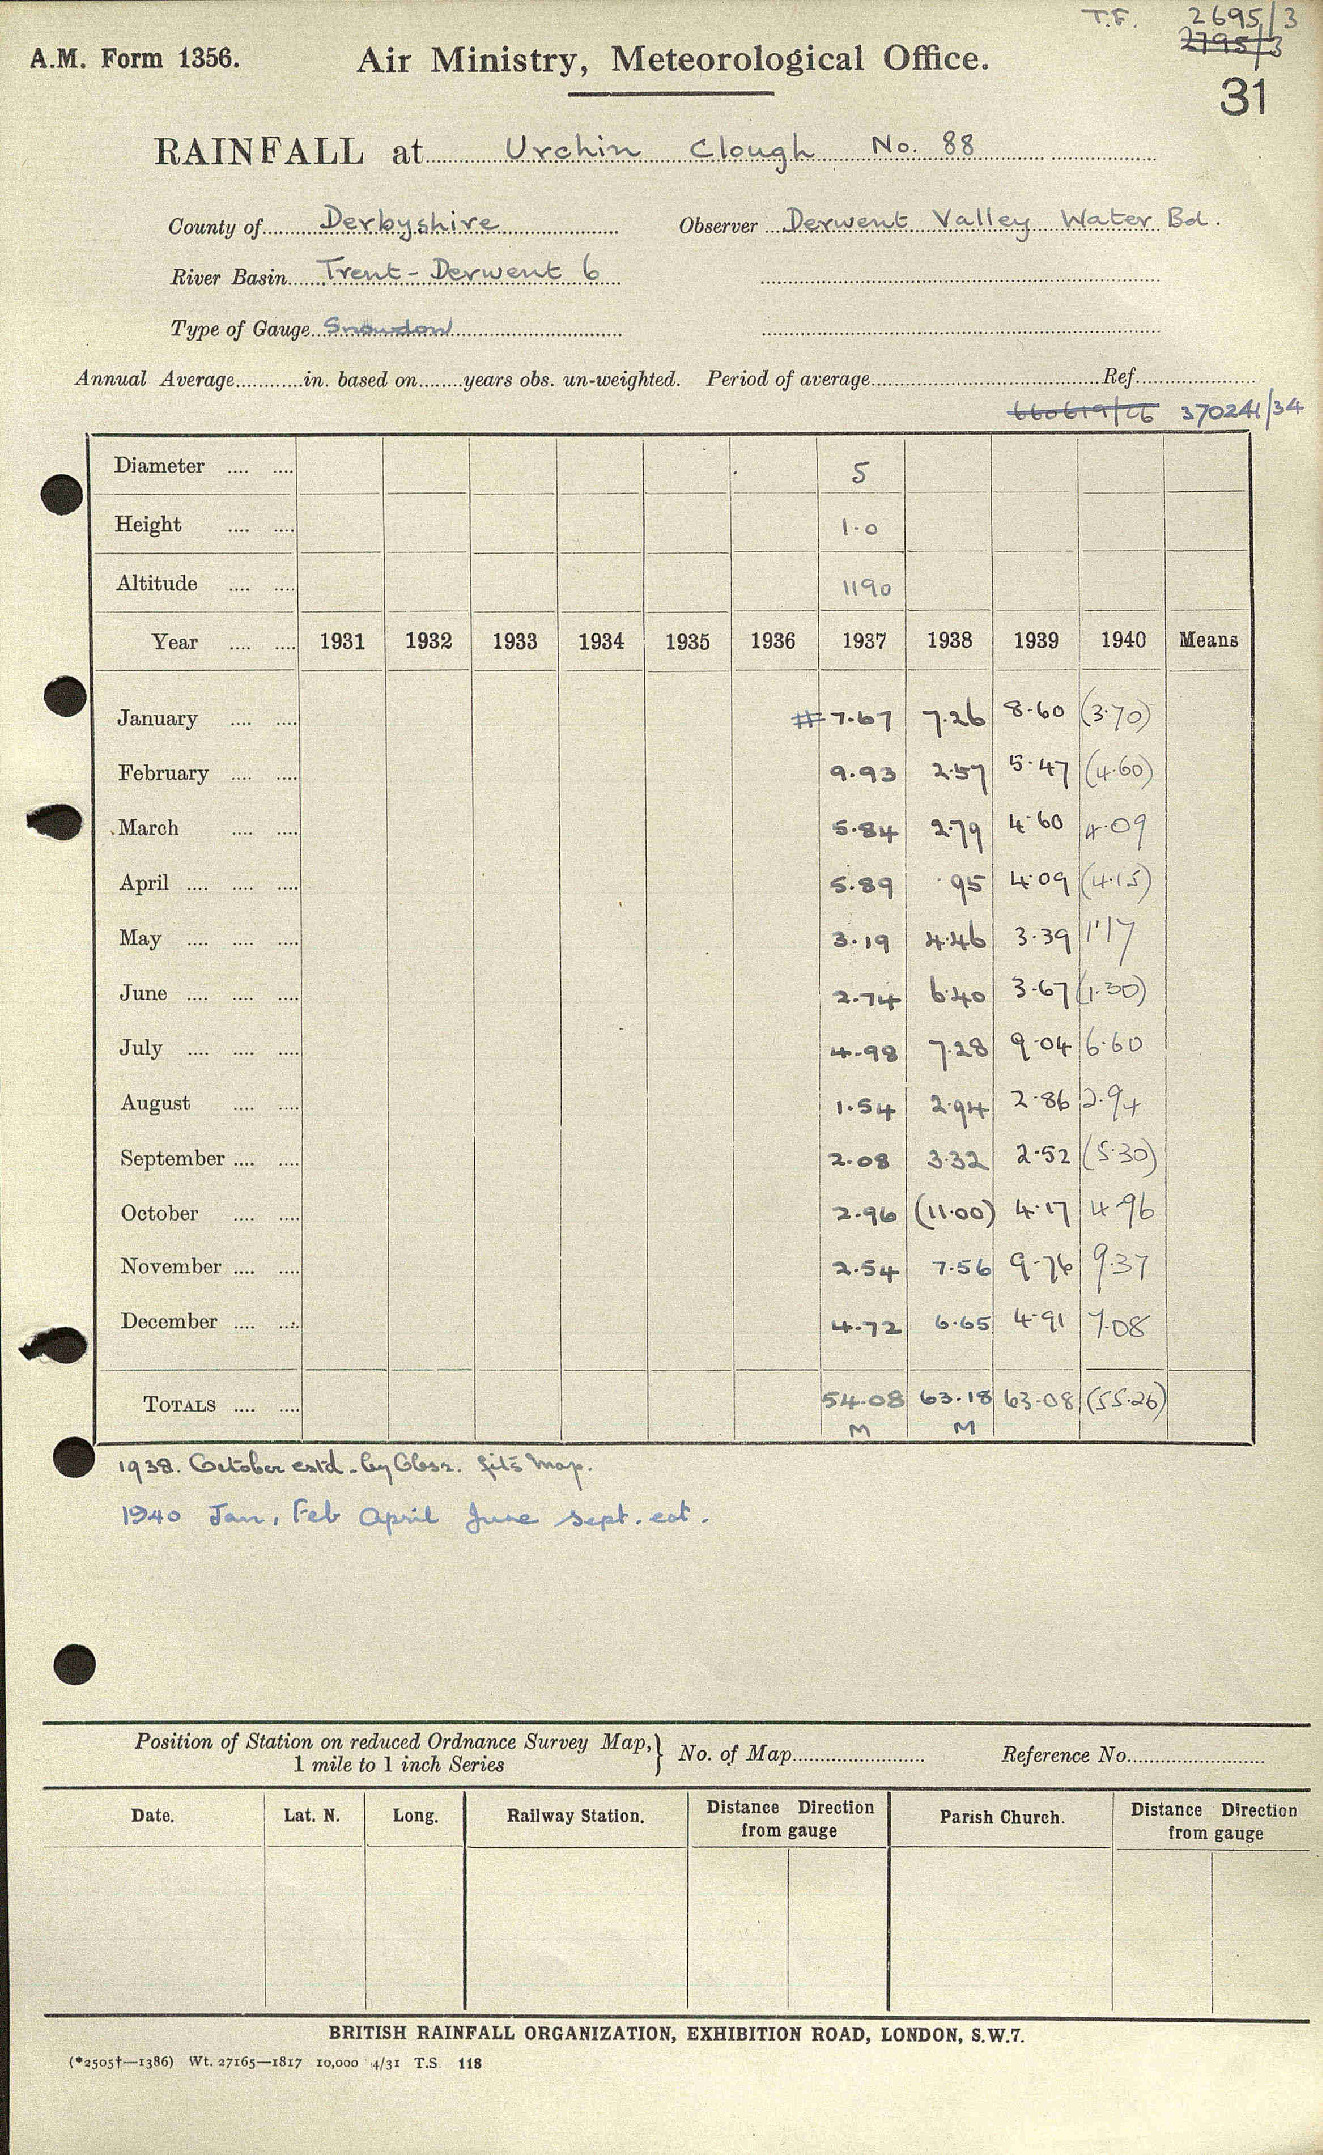 T.F. 2695/3
2795/3
A.M. Form 1356. Air Ministry, Meteorological Office.
31
RAINFALL at Urchin Clough No. 88
County of Derbyshire Observer Derwent Valley Water Bd.
River Basin Trent - Derwent 6
Type of Gauge Snowdon
Annual Average in. based on years obs. un-weighted. Period of average Ref.
370241/34
Diameter .... .... 5
Height .... .... 1.0
Altitude .... .... 1190
Year .... .... 1931 1932 1933 1934 1935 1936 1937 1938 1939 1940 Means
January .... .... # 7.67 7.26 8.60 (3.70)
February .... .... 9.93 2.57 5.47 (4.60)
March .... .... 5.84 2.79 4.60 4.09
April .... .... .... 5.89 .95 4.09 (4.15)
May .... .... .... 3.19 4.46 3.39 1.17
June .... .... .... 2.74 6.40 3.67 (1.30)
July .... .... .... 4.98 7.28 9.04 6.60
August .... .... 1.54 2.94 2.86 2.94
September .... .... 2.08 3.32 2.52 (5.30)
October .... .... 2.96 (11.00) 4.17 4.96
November .... .... 2.54 7.56 9.76 9.37
December .... .... 4.72 6.65 4.91 7.08
TOTALS .... .... 54.08 63.18 63.08 (55.26)
M M
1938. October est'd. by Obsr. fits map.
1940 Jan, Feb April June Sept. est.
Position of Station on reduced Ordnance Survey Map, } No. of Map Reference No.
1 mile to 1 inch Series
Date. Lat. N. Long. Railway Station. Distance Direction from gauge Parish Church. Distance Direction from gauge
BRITISH RAINFALL ORGANIZATION, EXHIBITION ROAD, LONDON, S.W.7.
(*2505†—1386) Wt. 27165—1817 10,000 4/31 T.S. 118